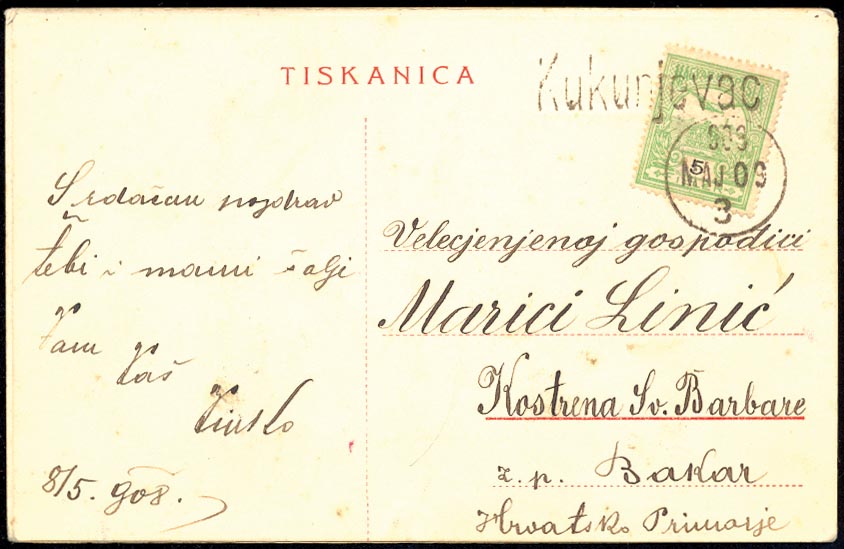 TISKANICA
Kukunjevac
5
MAJ 09
3
Srdačan pozdrav
tebi i mami šalje
Vam Vaš
Vinko
8/5. 908.
Velecjenjenoj gospodici
Marici Linić
Kostrena Sv. Barbare
z. p. Bakar
Hrvatsko Primorje